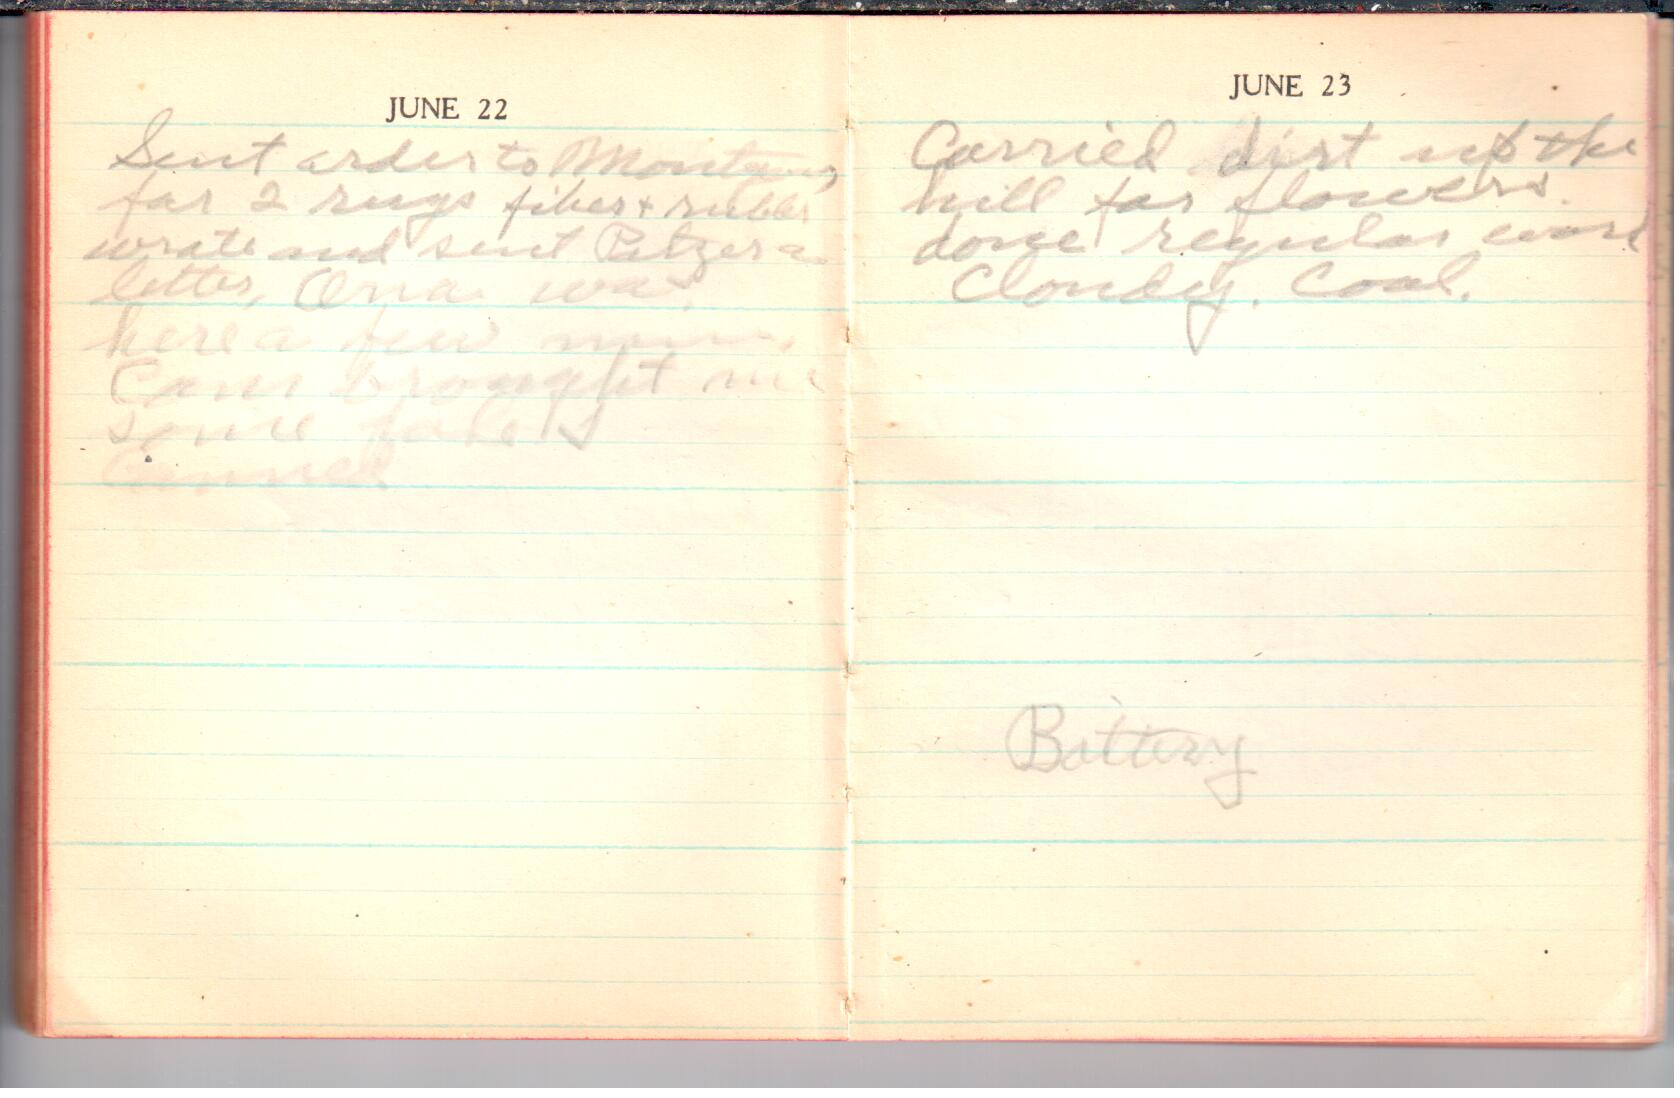 JUNE 22
Sent order to
for 2 rugs fiber + rubber
wrote and sent Pitzer a
letter, Orra was
here a few min.
brought me
some
JUNE 23
Carried dirt up the
hill for flowers.
done regular work
Cloudy. Cool.
Battery